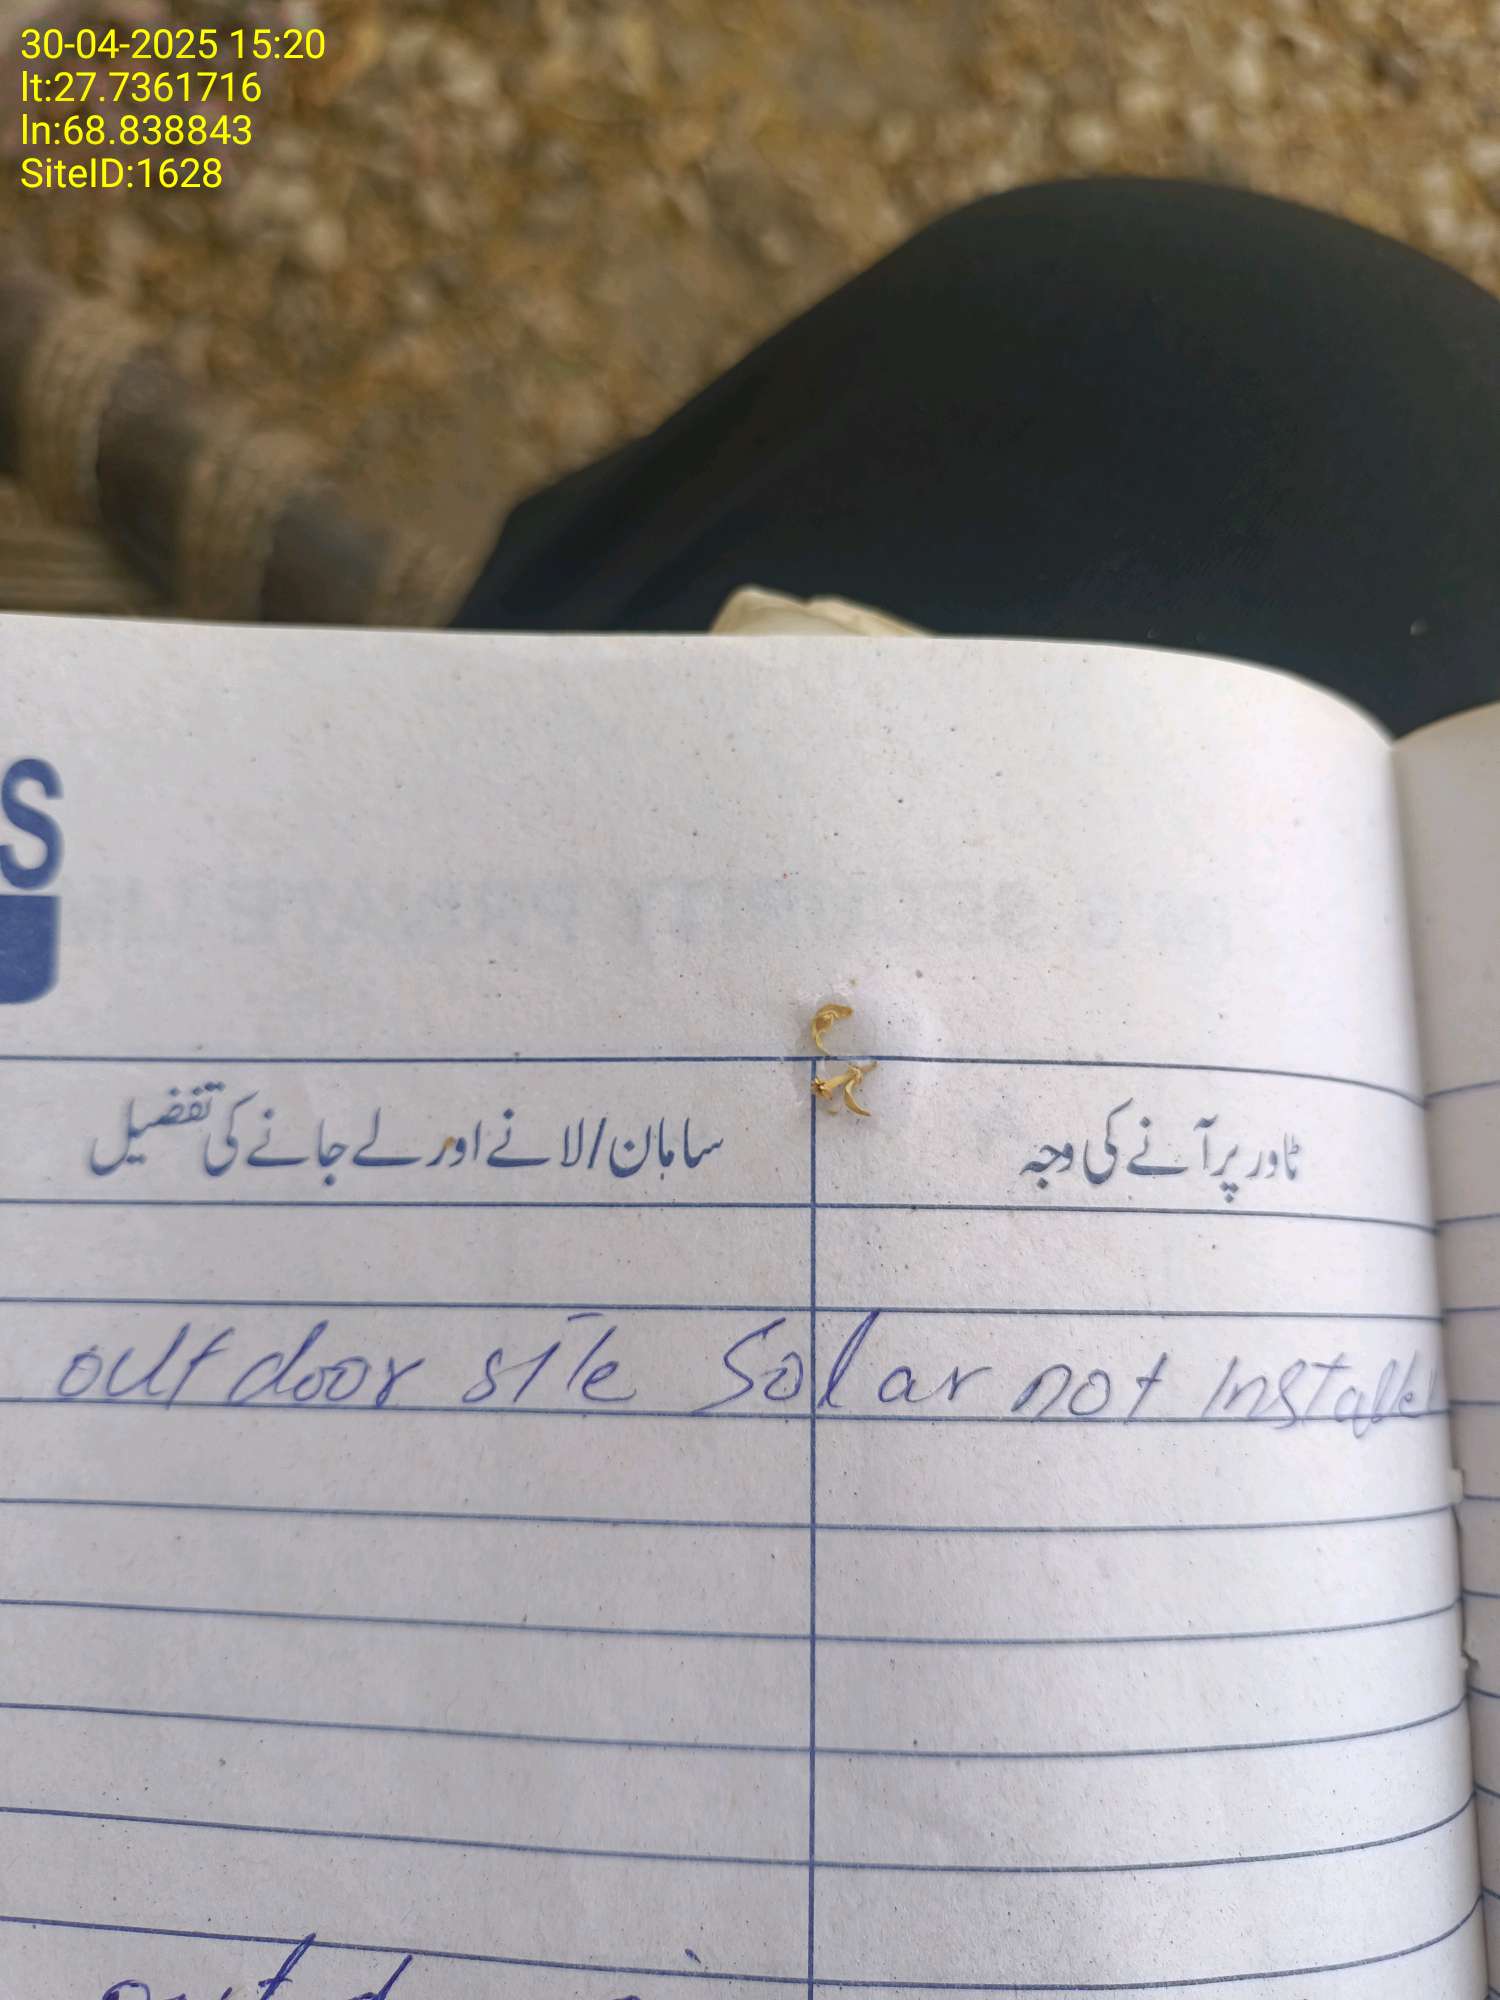 30-04-2025 15:20
lt:27.7361716
ln:68.838843
SiteID:1628
S
ٹاور پر آنے کی وجہ
سامان/لانے اور لے جانے کی تفصیل
outdoor site Solar not Installed
outd